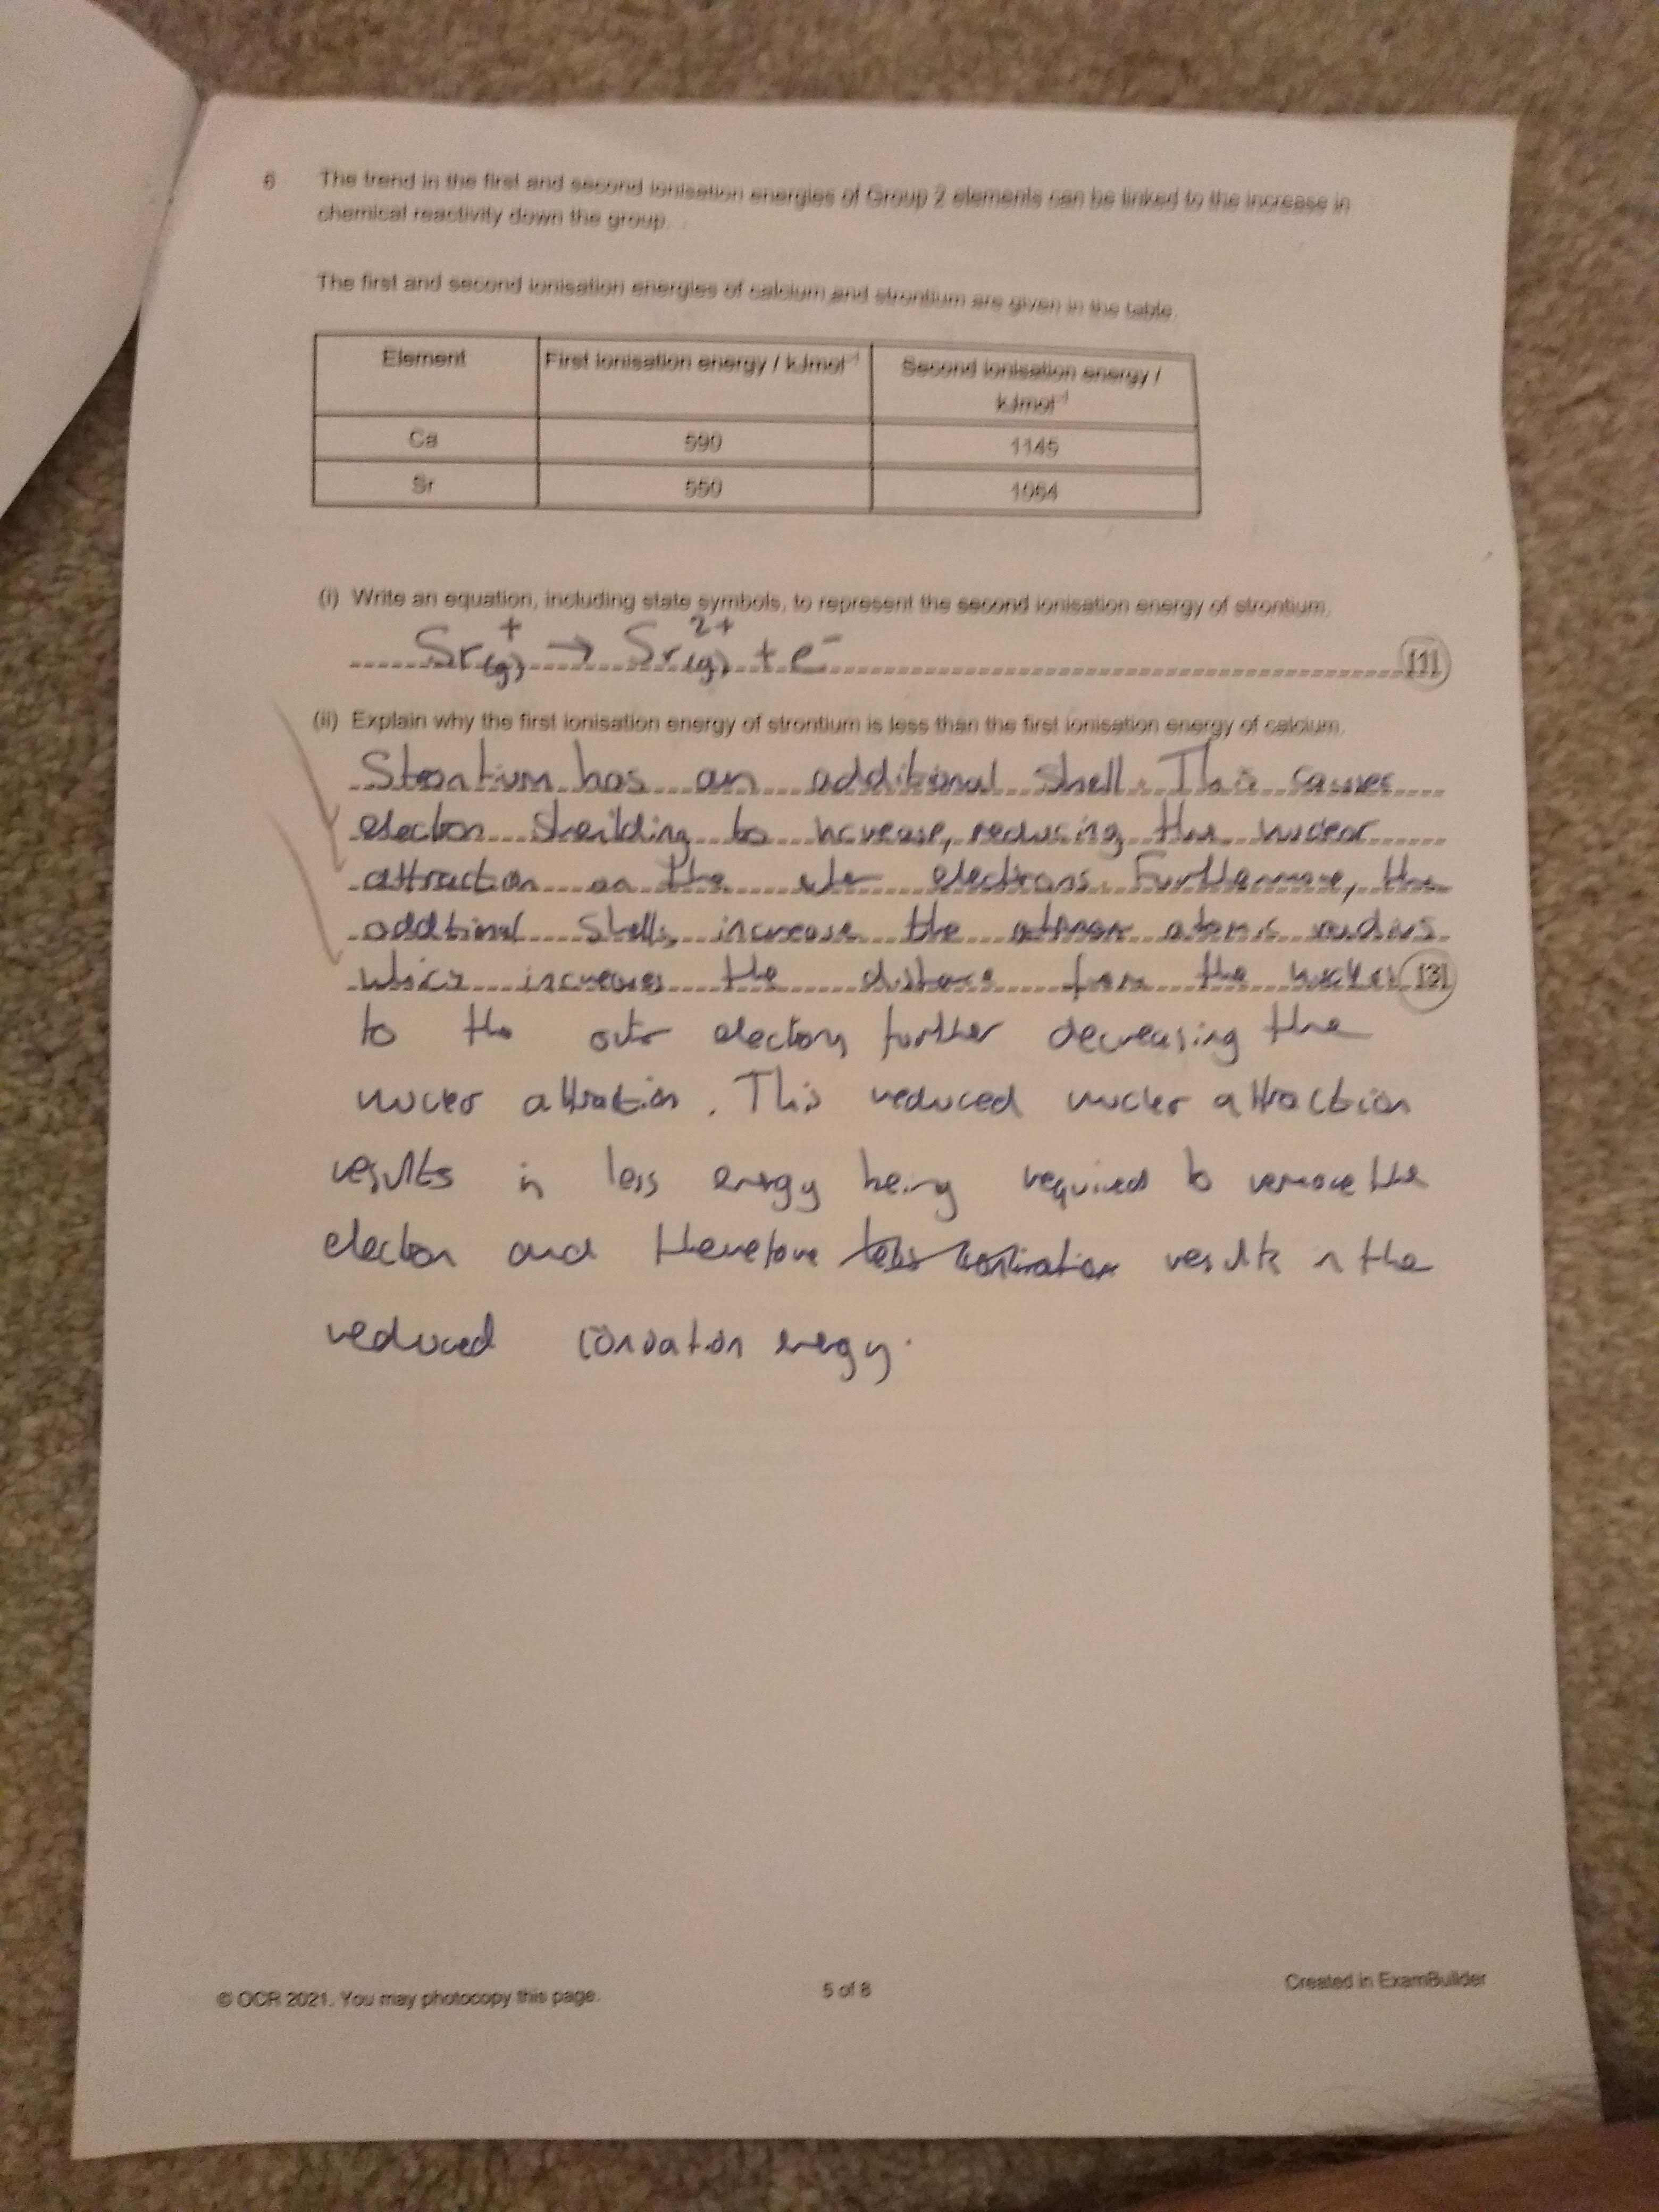 6 The trend in the first and second ionisation energies of Group 2 elements can be linked to the increase in
chemical reactivity down the group.
The first and second ionisation energies of calcium and strontium are given in the table.
Element First ionisation energy / kJmol⁻¹ Second ionisation energy /
kJmol⁻¹
Ca 590 1145
Sr 550 1064
(i) Write an equation, including state symbols, to represent the second ionisation energy of strontium.
Sr⁺(g) → Sr²⁺(g) + e⁻ [1]
(ii) Explain why the first ionisation energy of strontium is less than the first ionisation energy of calcium.
has an additional shell. This causes
electron to increase, reducing the nuclear
attraction on the electrons. Furthermore, the
shells increase the atomic radius
increases the distance from the [3]
to the further decreasing the
attraction. This reduced attraction
results in less energy being required to remove the
electron and therefore results in the
reduced energy.
© OCR 2021. You may photocopy this page. 5 of 8 Created in ExamBuilder